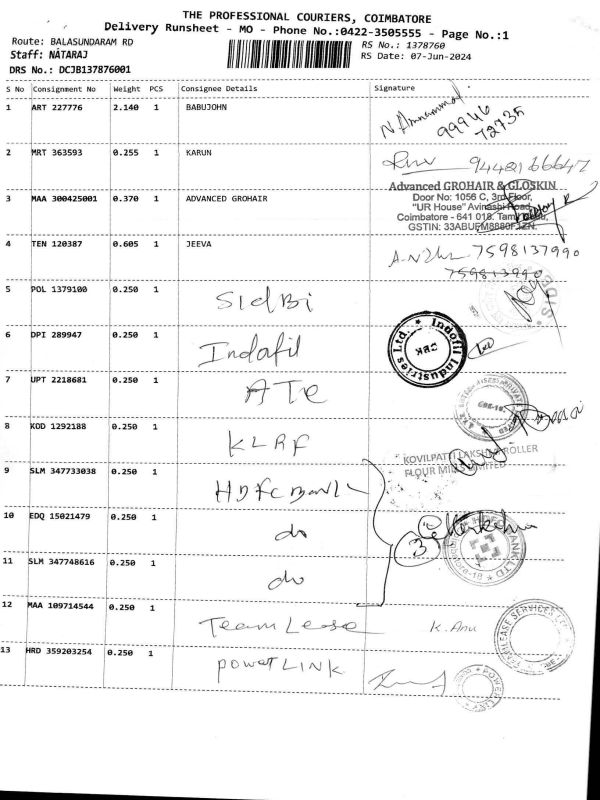 THE PROFESSIONAL COURIERS, COIMBATORE
Delivery Runsheet - MO - Phone No.:0422-3505555 - Page No.:1
Route: BALASUNDARAM RD
RS No.: 1378760
Staff: NATARAJ
RS Date: 07-Jun-2024
DRS No.: DCJB137876001
S No Consignment No Weight PCS Consignee Details Signature
1 ART 227776 2.140 1 BABUJOHN
99946
72735
2 MRT 363593 0.255 1 KARUN
3 MAA 300425001 0.370 1 ADVANCED GROHAIR
Advanced GROHAIR & GLOSKIN
Door No: 1056 C, 3rd Floor,
"UR House" Avinashi Road,
Coimbatore - 641 018.
GSTIN:
4 TEN 120387 0.605 1 JEEVA
7598137990
759813990
5 POL 1379100 0.250 1 SIdBi
6 DPI 289947 0.250 1 Indofil
Indofil Industries Ltd.
CBE
7 UPT 2218681 0.250 1 ATE
8 KDD 1292188 0.250 1 KLRF
KOVILPATTI LAKSHMI ROLLER
FLOUR MILLS LIMITED
9 SLM 347733038 0.250 1 HDFC Bank
10 EDQ 15021479 0.250 1 do
3
HDFC BANK LTD
11 SLM 347748616 0.250 1 do
12 MAA 109714544 0.250 1 Team Lease K. Anu
TEAMLEASE SERVICES LTD
13 HRD 359203254 0.250 1 POWER LINK